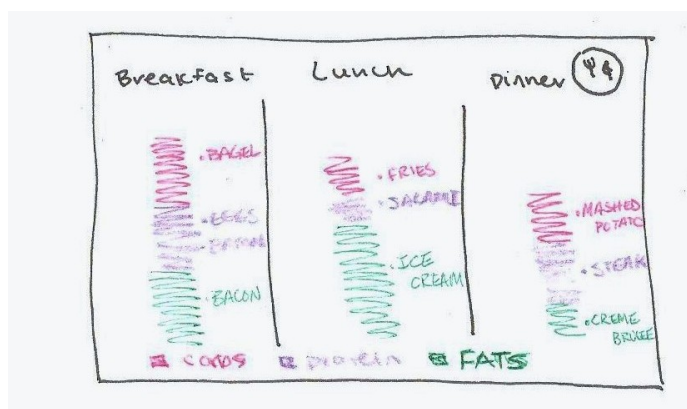 Breakfast
Lunch
Dinner
• BAGEL
• EGGS
• BACON
• BACON
• FRIES
• SALAMI
• ICE
CREAM
• MASHED
POTATO
• STEAK
• CREME
BRULEE
carbs
protein
FATS